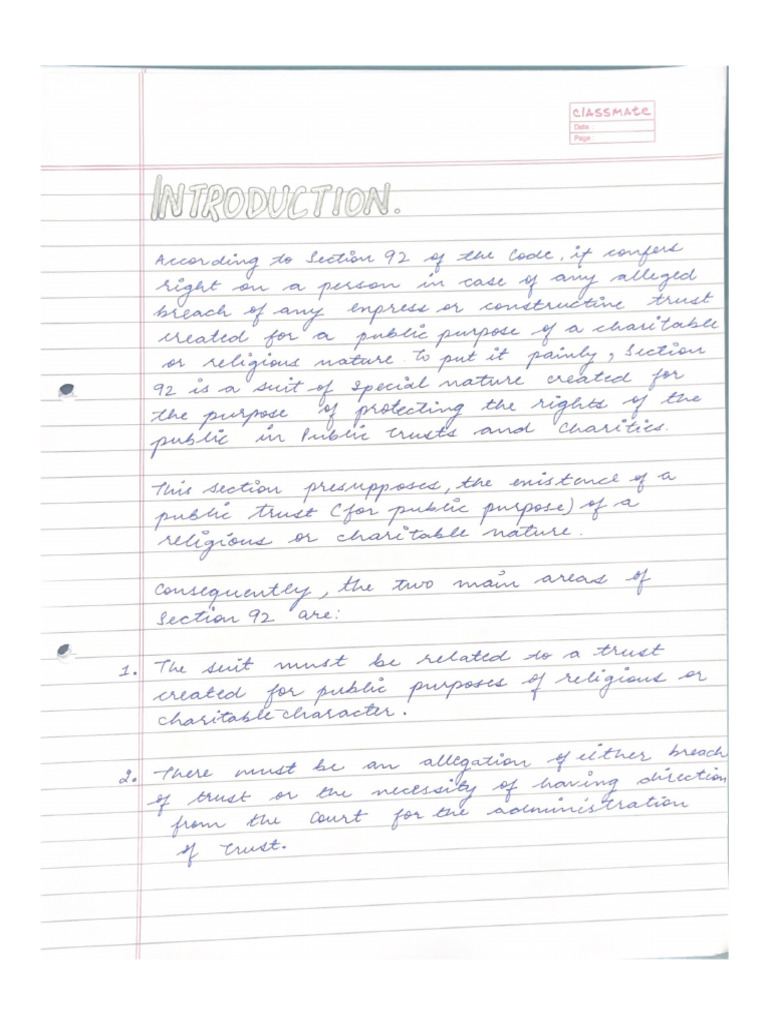 classmate
Date :
Page :
INTRODUCTION.
According to Section 92 of the Code, it confers
right on a person in case of any alleged
breach of any express or constructive trust
created for a public purpose of a charitable
or religious nature. To put it painly, Section
92 is a suit of special nature created for
the purpose of protecting the rights of the
public in Public trusts and charities.
This section presupposes, the existence of a
public trust (for public purpose) of a
religious or charitable nature.
Consequently, the two main areas of
Section 92 are:
1. The suit must be related to a trust
created for public purposes of religious or
charitable character.
2. There must be an allegation of either breach
of trust or the necessity of having direction
from the Court for the administration
of trust.